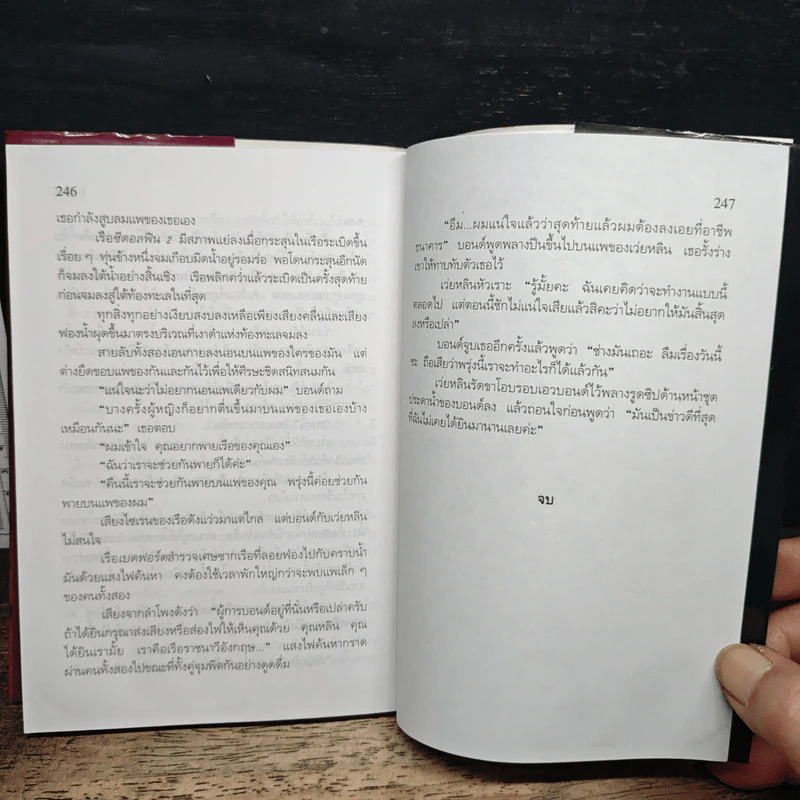 246
เธอกำลังสูบลมแพของเธอเอง
เรือซีดอลฟิน 2 มีสภาพแย่ลงเมื่อกระสุนในเรือระเบิดขึ้น
เรื่อยๆ ทุ่นข้างหนึ่งจมเกือบมิดน้ำอยู่รอมร่อ พอโดนกระสุนอีกนัด
ก็จมลงใต้น้ำอย่างสิ้นเชิง เรือพลิกคว่ำแล้วระเบิดเป็นครั้งสุดท้าย
ก่อนจมลงสู่ใต้ท้องทะเลในที่สุด
ทุกสิ่งทุกอย่างเงียบสงบลงเหลือเพียงเสียงคลื่นและเสียง
ฟองน้ำผุดขึ้นมาตรงบริเวณที่เงาดำแห่งท้องทะเลจมลง
สายลับทั้งสองเอนกายลงนอนบนแพของใครของมัน แต่
ต่างยึดขอบแพของกันและกันไว้เพื่อให้ศีรษะชิดสนิทสนมกัน
“แน่ใจนะว่าไม่อยากนอนแพเดียวกับผม” บอนด์ถาม
“บางครั้งผู้หญิงก็อยากตื่นขึ้นมาบนแพของเธอเองบ้าง
เหมือนกันนะ” เธอตอบ
“ผมเข้าใจ คุณอยากพายเรือของคุณเอง”
“ฉันว่าเราจะช่วยกันพายก็ได้ค่ะ”
“คืนนี้เราจะช่วยกันพายบนแพของคุณ พรุ่งนี้ค่อยช่วยกัน
พายบนแพของผม”
เสียงไซเรนของเรือดังแว่วมาแต่ไกล แต่บอนด์กับเว่ยหลิน
ไม่สนใจ
เรือเบดฟอร์ดสำรวจเศษซากเรือที่ลอยฟ่องไปกับคราบน้ำ
มันด้วยแสงไฟค้นหา คงต้องใช้เวลาพักใหญ่กว่าจะพบแพเล็กๆ
ของคนทั้งสอง
เสียงจากลำโพงดังว่า “ผู้การบอนด์อยู่ที่นั่นหรือเปล่าครับ
ถ้าได้ยินกรุณาส่งเสียงหรือส่องไฟให้เห็นคุณด้วย คุณหลิน คุณ
ได้ยินเรามั้ย เราคือเรือราชนาวีอังกฤษ...” แสงไฟค้นหากราด
ผ่านคนทั้งสองไปขณะที่ทั้งคู่จุมพิตกันอย่างดูดดื่ม
247
“อืม...ผมแน่ใจแล้วว่าสุดท้ายแล้วผมต้องลงเอยที่อาชีพ
ธนาคาร” บอนด์พูดพลางปีนขึ้นไปบนแพของเว่ยหลิน เธอรั้งร่าง
เขาให้ทาบทับตัวเธอไว้
เว่ยหลินหัวเราะ “รู้มั้ยคะ ฉันเคยคิดว่าจะทำงานแบบนี้
ตลอดไป แต่ตอนนี้ชักไม่แน่ใจเสียแล้วสิคะว่าไม่อยากให้มันสิ้นสุด
ลงหรือเปล่า”
บอนด์จูบเธออีกครั้งแล้วพูดว่า “ช่างมันเถอะ ลืมเรื่องวันนี้
ซะ ถือเสียว่าพรุ่งนี้เราจะทำอะไรก็ได้แล้วกัน”
เว่ยหลินรัดขาโอบรอบเอวบอนด์ไว้พลางรูดซิปด้านหน้าชุด
ประดาน้ำของบอนด์ลง แล้วถอนใจก่อนพูดว่า “มันเป็นข่าวดีที่สุด
ที่ฉันไม่เคยได้ยินมานานเลยค่ะ”
จบ